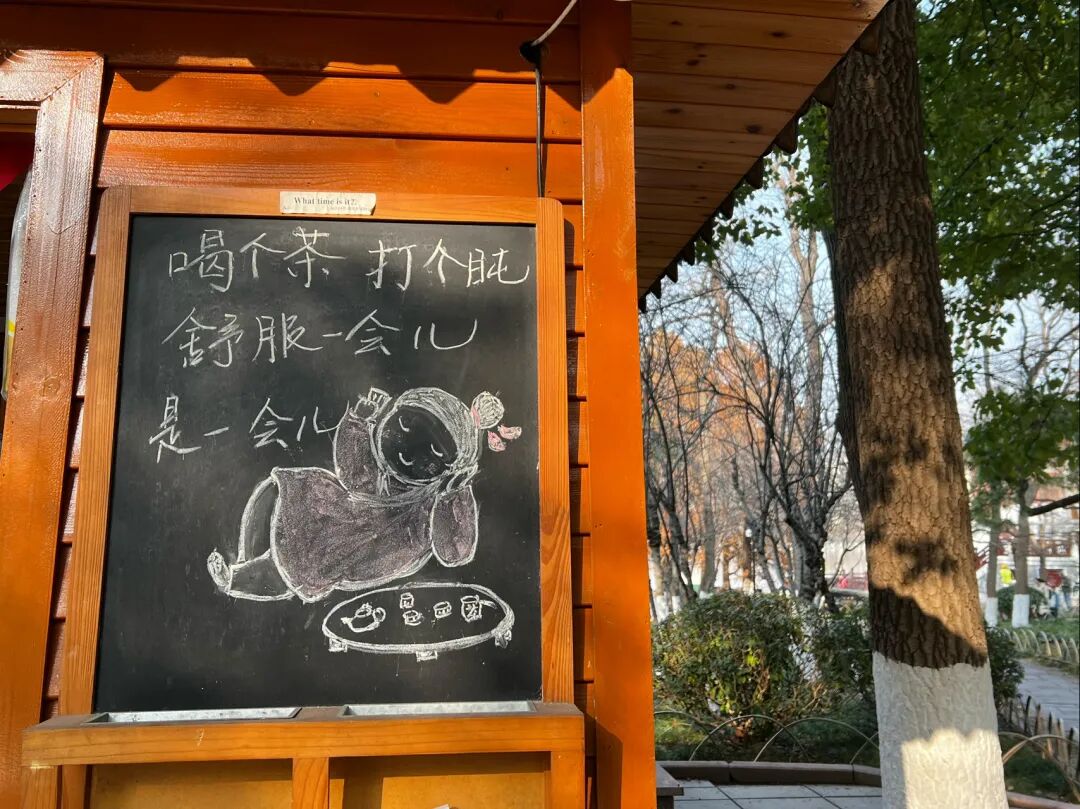 What time is it?.
喝个茶 打个盹
舒服一会儿
是一会儿